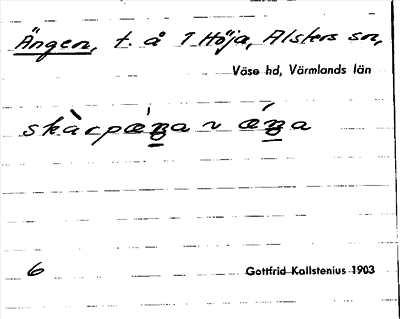 Ängen, t. å 1 Höja, Alsters sn,
Väse hd, Värmlands län
skàrpǽŋa ~ ǽŋa
6
Gottfrid Kallstenius 1903